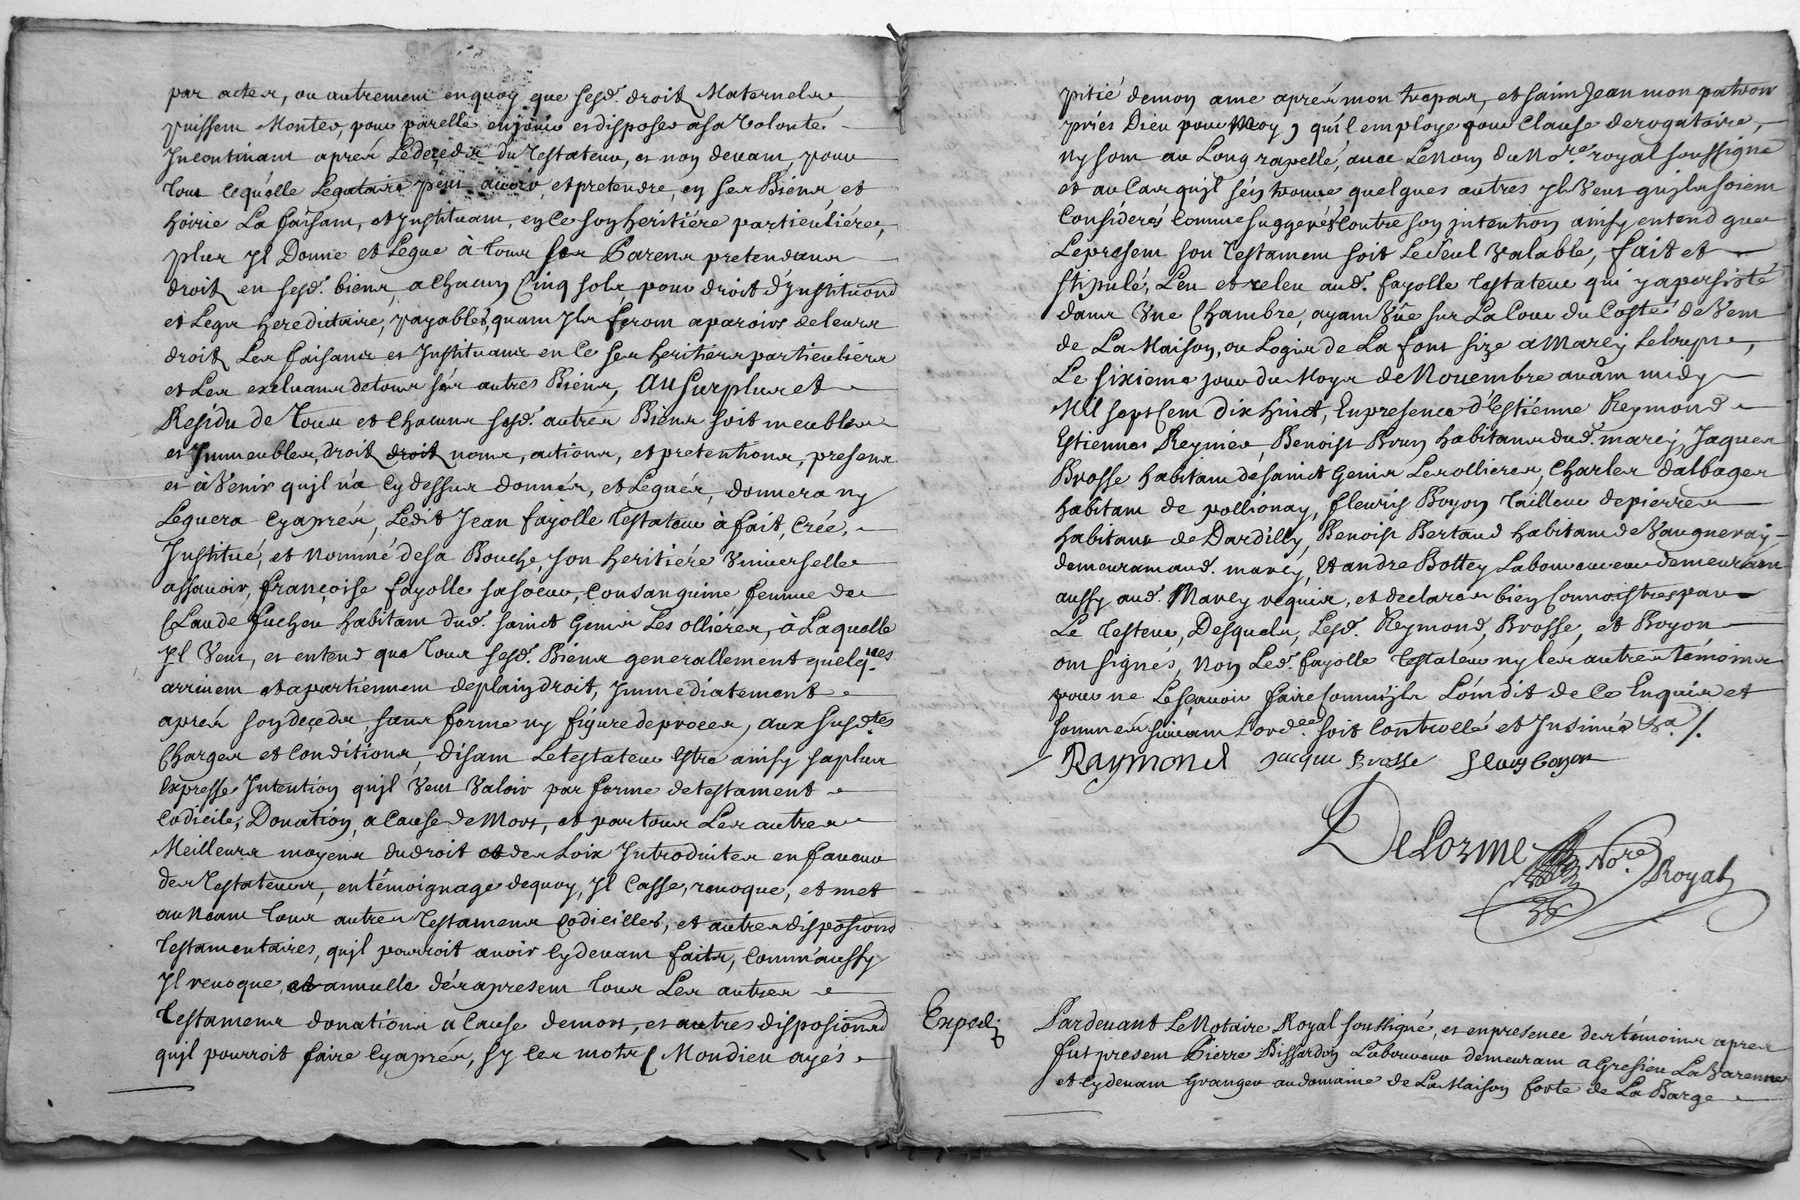 par actes, ou autrement en quoy que sesd. droit Maternels
puissent Monter, pour par elle en jouir et disposer a sa Volonté
Incontinant aprés Le decedz du Testateur, et non devant, pour
tout ce qu'elle Legataire peut avoir, et pretendre, en ses Biens, et
hoirie La faisant, et Instituant, en ce son heritiére particuliére,
plus Il Donne et Legue à tous ses Parens pretendans
droit en sesd. biens, a chacun Cinq sols, pour droit d'Institu͠on
et Legs hereditaire, payables, quant Ils feront aparoirs de leurs
droit Les faisans et Instituans en ce ses heritiers particuliers
et Les excluans de tous ses autres Biens, Au Surplus et
Residu de Tous et chacuns sesd. autres Biens soit meubles
et Immeubles, droit droit noms, actions, et pretentions, presens
et à Venir qu'jl n'a cy dessus donnés, et Legués, donnera ny
Leguera cy aprés, Ledit Jean fayolle Testateur à fait, Crée,
Institué, et Nommé de sa Bouche, son heritiére Universelle
assavoir, françoise fayolle sa soeur, Consanguine femme de
Claude fucheu habitant dud. sainct Genis Les ollieres, à Laquelle
Il Veut, et entend que Tous sesd. Biens generallement quelq.ues
arrivent et apartiennent de plain droit, Immediatement
aprés son decedz, sans forme ny figure de procez, aux susd.tes
Charges et Conditions, disant Le testateur Estre ainsy sa plus
Expresse Intention qu'jl Veut Valoir par forme de testament
Codicile, Donation, a Cause de Mort, et par tous Les autres
Meilleurs moyens du droit et des Loix Introduites en faveur
des Testateurs, en têmoignage de quoy, Il Casse, revoque, et met
au Neant tous autres Testamens Codicilles, et autres disposi͠ons
Testamentaires, qu'jl pourroit avoir Cy devant faits, Comm'aussy
Il revoque, et annulle dés a present tous Les autres
Testamens donations a Cause de mort, et autres disposi͠ons
qu'jl pourroit faire Cy aprés, sy Les mots ( Mon dieu ayés
pitié de mon ame aprés mon trepas, et saint Jean mon patron
priés Dieu pour Moy ) qu'jl employe pour Clause derogatoire,
ny sont au Long rapellé, avec Le Nom du No.re royal soussigné
et au Cas qu'jl s'en trouve quelques autres jl Veut qu'jls soient
Considerés Comme suggerés Contre son jntention ainsy entend que
Le present son Testament soit Le Seul Valable, fait et
stipulé, Leu et releu aud. fayolle testateur qui y a persisté
dans Une Chambre, ayant Vüe sur La Cour du Costé de Vent
de La Maison, ou Logis de La font size a Marcy Le loups,
Le sixieme jour du Moys de Novembre avant midy
Mil sept Cent dix huict, En presence d'Estienne Reymond
Estiennes Reynier, Benoist Brun habitans dud. marcy, Jaques
Brosse habitant de sainct Genis Les ollieres, Charles dalbages
habitant de pollionay, fleuris Boyon tailleur de pierres
habitans de Dardilly, Benoist Bertaud habitant de Vaugneray
demeurant aud. marcy, Et andre Bottey Laboureur demeurant
aussy aud. Marcy requis, et declarans bien Connoistres par
Le Testeur, Desquels, Lesd. Reymond, Brosse, et Boyon
ont signés, Non Led. fayolle testateur ny les autres têmoins
pour ne Le sçavoir faire Comm'jls L'ont dit de ce Enquis et
sommés suivant L'ord.ce soit Controllé et Insinué &.a /.
Raymond Jacque Brosse fleury boyon
DeLorme No.re Royal
Exped.
Pardevant Le Notaire Royal soussigné, et en presence des témoins apres
fut present Pierre Bissardon Laboureur demeurant a Gresieu La Varenne
et Cy devant Granger au domaine de La Maison forte de La Barge